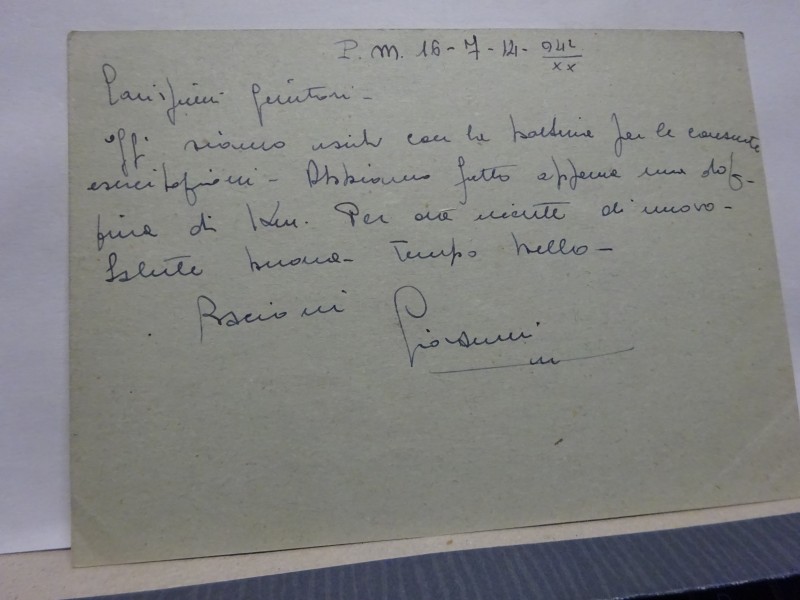 P. M. 16 - 7 - 14 - 942
XX
Carissimi genitori -
Oggi siamo usciti con la batteria per le consuete
esercitazioni - Abbiamo fatto appena una doz-
zina di Km. Per ora niente di nuovo -
Salute buona - Tempo bello -
Bacioni Giovanni